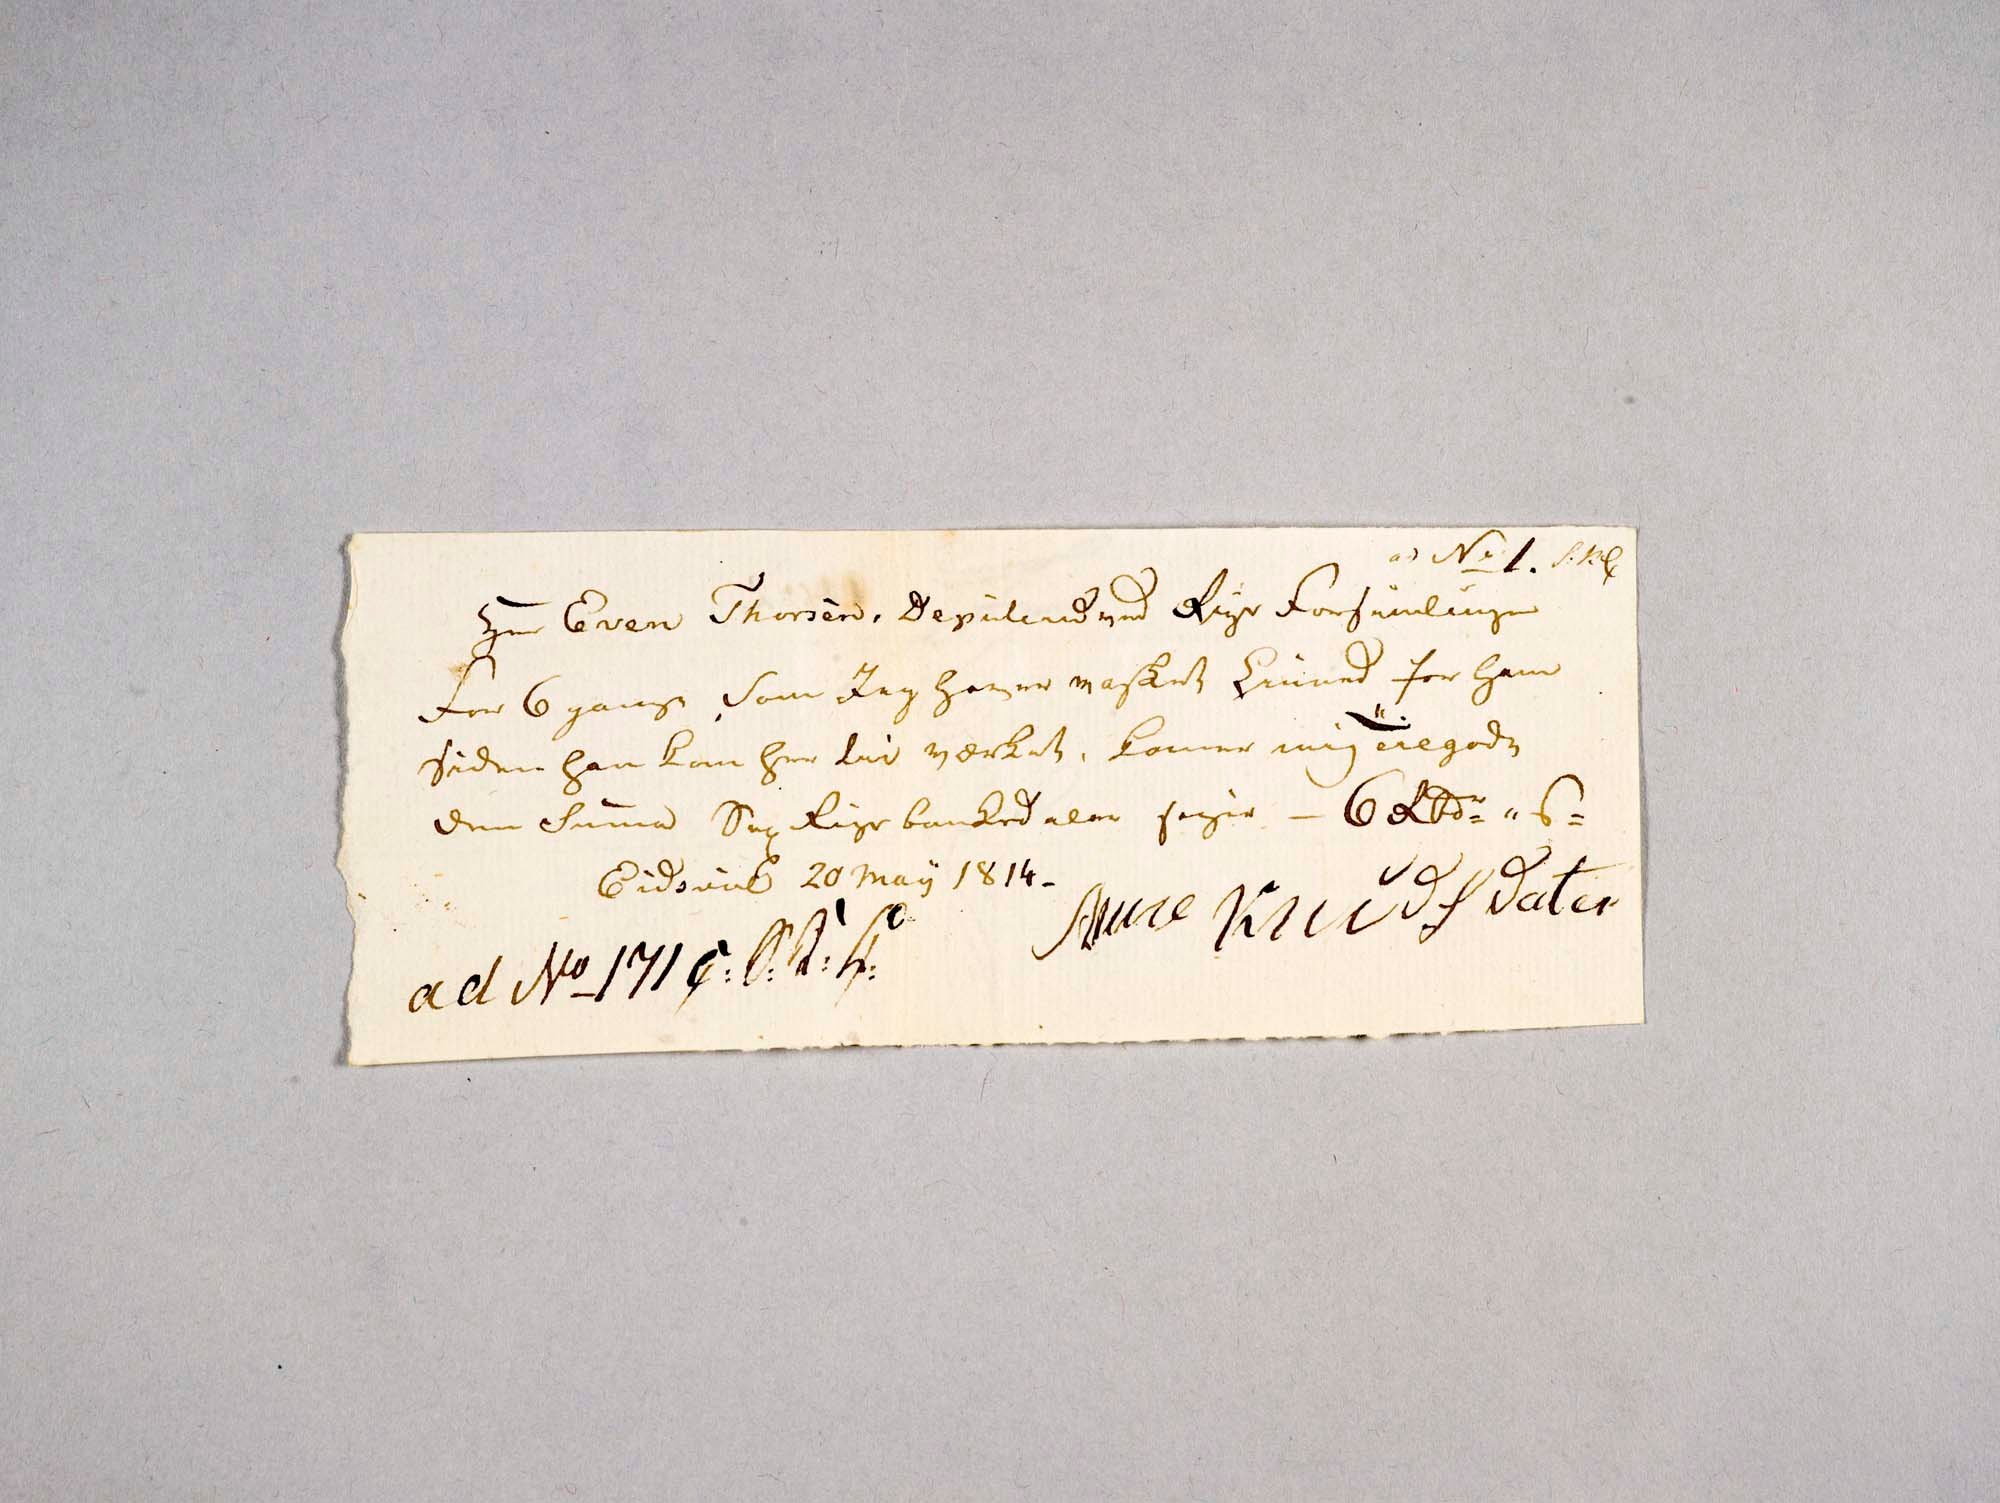 ad No 1.
Hr Even Thorsen, Deputered ved Rigs Forsamlingen
For 6 gange, som Jeg haver vasket Linned for ham
siden han kom her til værket, komer mig tilgode
den Suma Sex Rigsbankdaler siger — 6 Rbdr "s
Eidsvol 20 Maÿ 1814 -
Anne Knudsdater
ad No 171